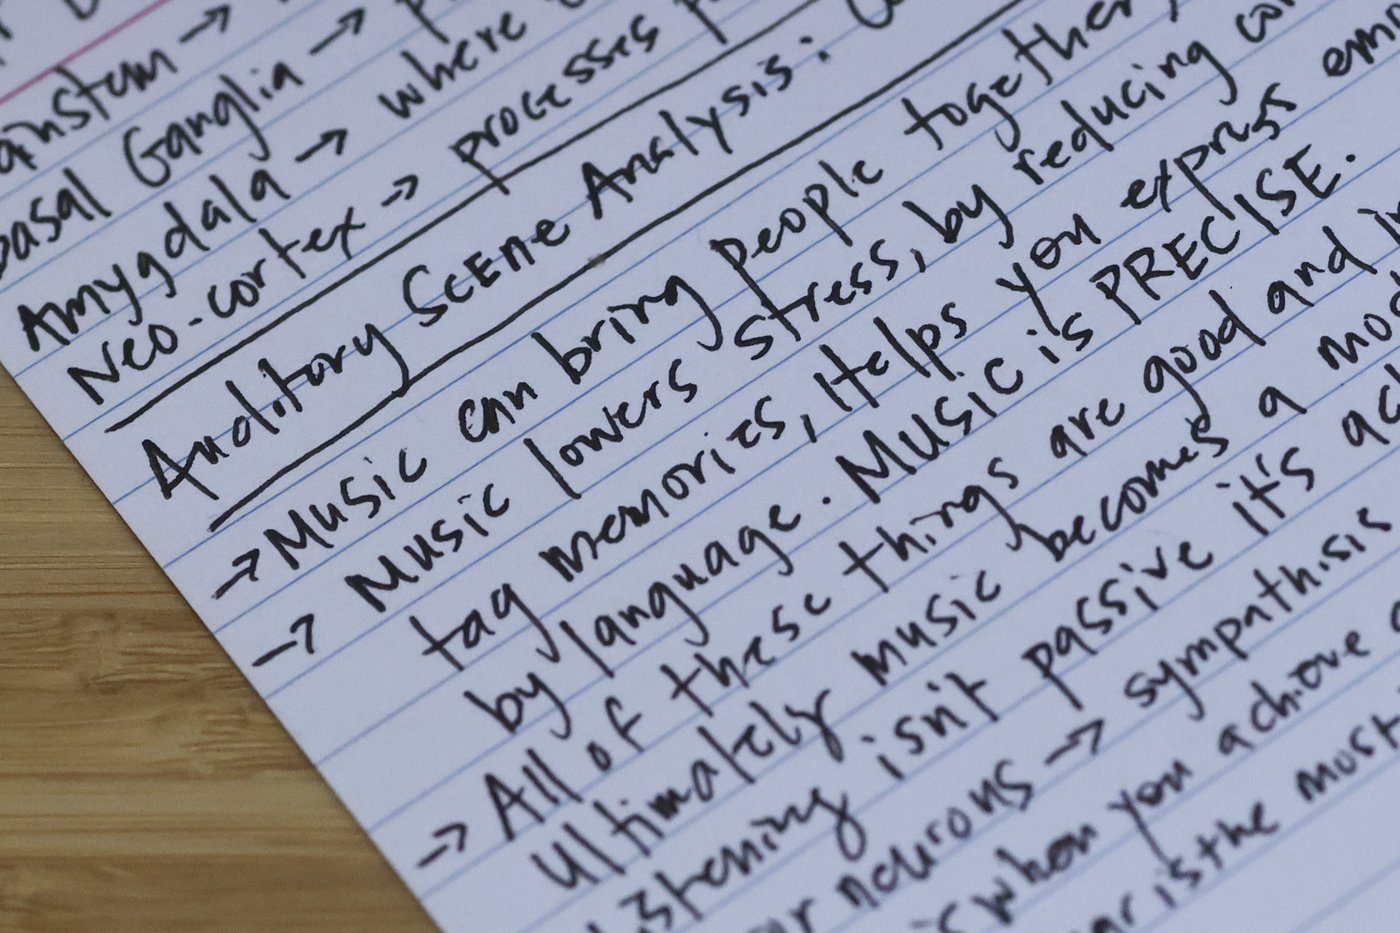 Basal Ganglia →
Amygdala → where
Neo-cortex → processes
Auditory Scene Analysis:
→ Music can bring people together,
→ Music lowers stress, by reducing
tag memories, Helps you express
by language. Music is PRECISE.
→ All of these things are good and
Ultimately music becomes a
listening isn't passive it's
neurons → sympathisis
when you achieve
is the most